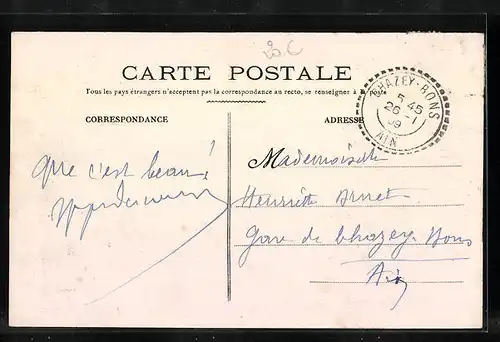 25 C
CARTE POSTALE
Tous les pays étrangers n'acceptent pas la correspondance au recto, se renseigner à la poste
CORRESPONDANCE
ADRESSE
CHAZEY-BONS
5 45
26 - 1
09
AIN
Que c'est beau!
Mademoiselle
Henriette
Gare de Chazey-Bons
Ain